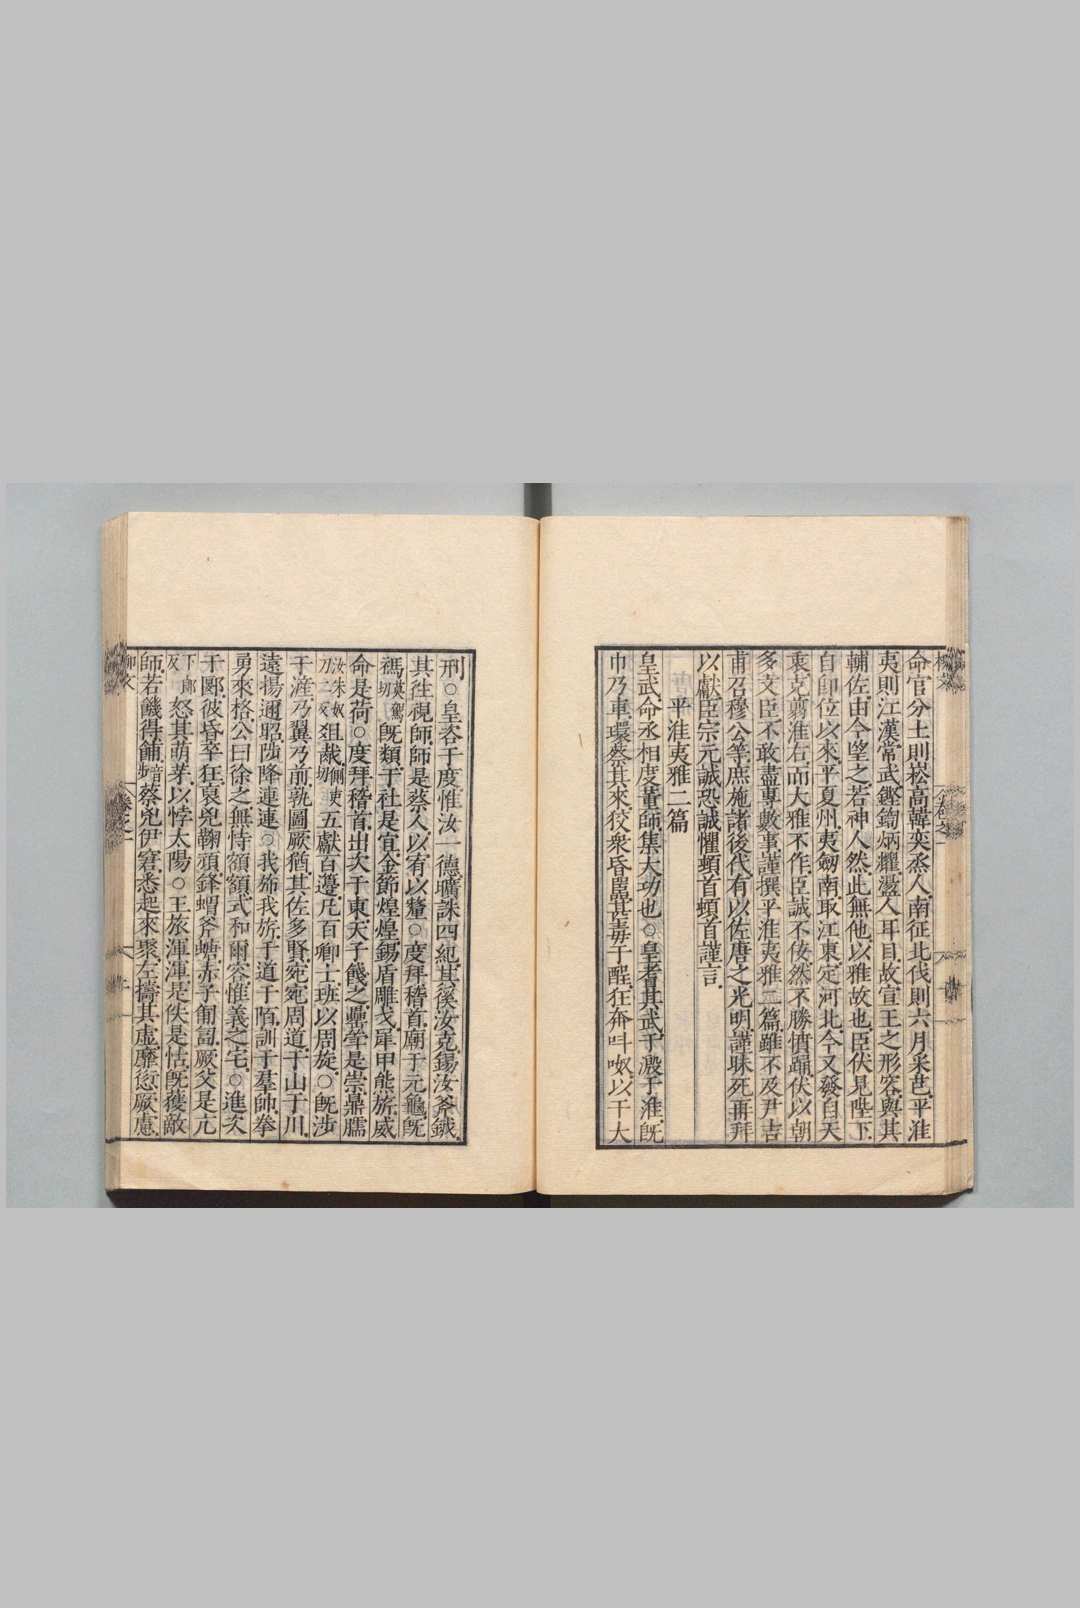 柳文
命官分土則崧高韓奕烝人南征北伐則六月采芑平淮
夷則江漢常武鏗鍧炳耀盪人耳目故宣王之形容與其
輔佐由今望之若神人然此無他以雅故也臣伏見陛下
自即位以來平夏州夷劒南取江東定河北今又發自天
衷克翦淮右而大雅不作臣誠不佞然不勝憤踊伏以朝
多文臣不敢盡專數事謹撰平淮夷雅二篇雖不及尹吉
甫召穆公等庶施諸後代有以佐唐之光明謹昧死再拜
以獻臣宗元誠恐誠懼頓首頓首謹言
平淮夷雅二篇
皇武命丞相度董師集大功也○皇耆其武于溵于淮既
巾乃車環蔡其來狡衆昏嚚甚毒于酲狂奔叫呶以干大
刑○皇咨于度惟汝一德曠誅四紀其徯汝克錫汝斧鉞
其往視師師是蔡人以宥以釐○度拜稽首廟于元龜既
禡莫駕切既類于社是宜金節煌煌錫盾雕戈犀甲熊旂威
命是荷○度拜稽首出次于東天子餞之罍斝是崇鼎臑
汝朱奴刀二反俎胾側吏切五獻百籩凡百卿士班以周旋○既涉
于滻乃翼乃前孰圖厥猶其佐多賢宛宛周道于山于川
遠揚邇昭陟降連連○我旆我旂于道于陌訓于羣帥拳
勇來格公曰徐之無恃頟頟式和爾容惟義之宅○進次
于郾彼昏卒狂裒兇鞠頑鋒蝟斧螗赤子匍匐厥父是亢
下郎反怒其萌芽以悖太陽○王旅渾渾是佚是怙既獲敵
師若饑得餔蔡兇伊窘悉起來聚左擣其虛靡愆厥慮
柳文 卷之一